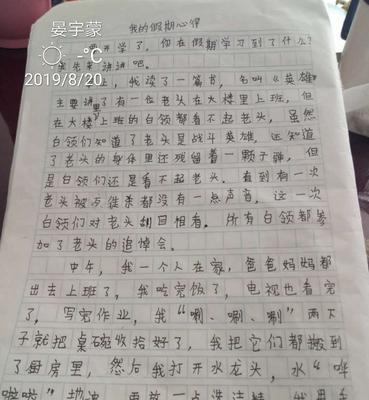 晏宇蒙
℃
2019/8/20
我的假期心得
要开学了，你在假期学习到了什么？
先来讲讲吧。
上，我读了一篇书，名叫《英雄
主要讲了有一位老头在大楼里上班，但
在大楼里上班的白领都看不起老头，虽然
白领们知道了老头是战斗英雄，还知道
了老头的身体里还残留着一颗子弹，但
是白领们还是看不起老头。直到有一次
老头被歹徒杀都没有一点声音，这一次
白领们对老头刮目相看。所有白领都参
加了老头的追悼会。
中午，我一个人在家，爸爸妈妈都
出去上班了，我吃完饭了，电视也看完
了，写完作业，我“唰、唰、唰”两下
子就把桌碗收拾好了，我把它们都搬到
了厨房里，然后我打开水龙头，水“哗
啦啦”
再放一点洗洁精